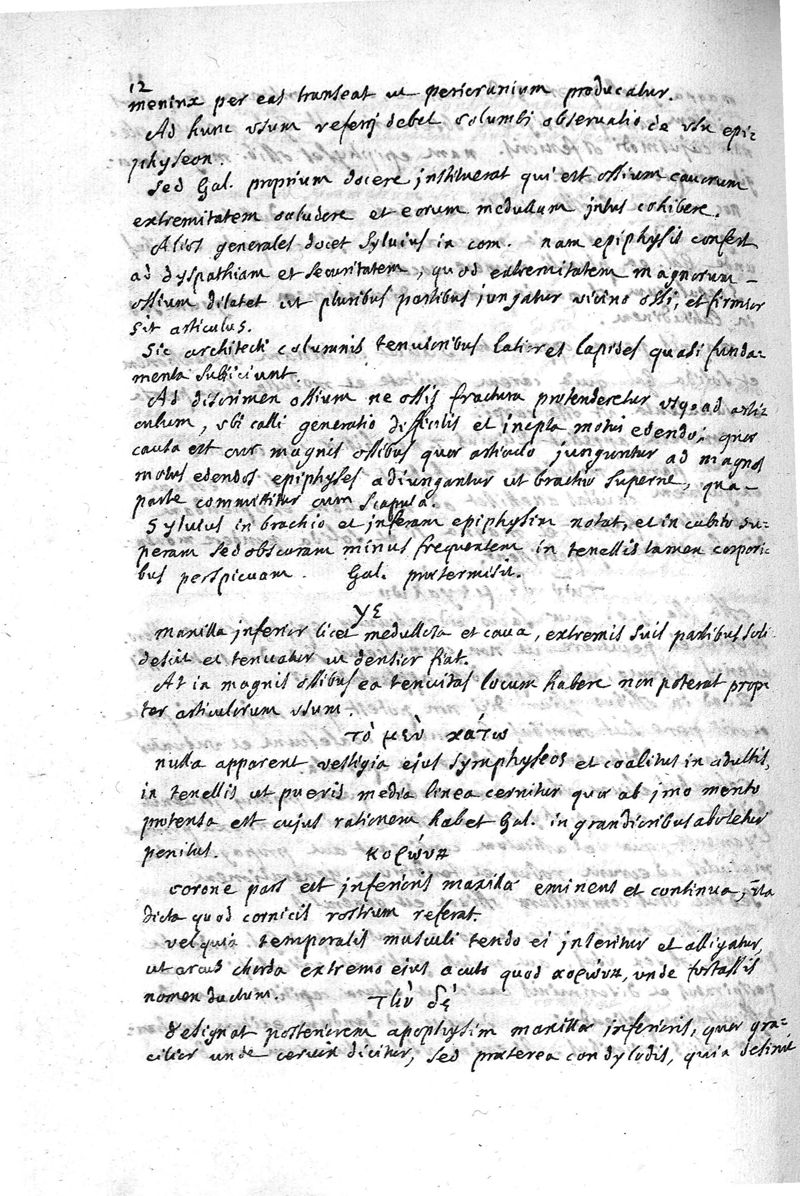 12
meninx per eas transeat ut pericranium producatur.
Ad hunc usum referri debet columbi observatio de usu epi=
physeon.
Sed Gal. proprium docere instituerat qui est ossium cavorum
extremitatem claudere et eorum medullam intus cohibere.
Alios generales docet Sylvius in com. nam epiphysis confert
ad dyspathiam et securitatem, quod extremitatem magnorum –
ossium dilatet ut pluribus partibus jungatur vicino ossi, et firmior
sit articulus.
Sic architecti columnis tenuioribus latiores lapides quasi funda=
menta subiiciunt.
Ad discrimen ossium ne ossis fractura protenderetur usque ad arti=
culum, ubi calli generatio difficilis et inepta motui edendo; quæ
causa est cur magnis ossibus quæ articulo junguntur ad magnos
motus edendos epiphyses adiungantur ut brachio superne, qua –
parte committitur cum scapula.
Sylvius in brachio et inferam epiphysim notat, et in cubito su=
peram sed obscuram minus frequentem in tenellis tamen corpori=
bus perspicuam. Gal. prætermisit.
γε
maxilla inferior licet medullosa et cava, extremis suis partibus soli
descit et tenuatur ut densior fiat.
At in magnis ossibus ea tenuitas locum habere non poterat prop=
ter articulorum usum.
τὸ μεν κάτω
nulla apparent vestigia ejus symphyseos et coalitus in adultis,
in tenellis ut pueris media linea cernitur quæ ab imo mento
protensa est cujus rationem habet Gal. in grandioribus aboletur
penitus.
κορώνη
corone pars est inferioris maxillæ eminens et continua, ita
dicta quod cornicis rostrum referat.
vel quia temporalis musculi tendo ei inseritur et alligatur,
ut arcus chorda extremo ejus acuto quod κορώνη, unde fortassis
nomen ductum.
τὴν δέ
designat posteriorem apophysim maxillæ inferioris, quæ gra=
cilior unde cervix dicitur, sed præterea condylodis, quia desinit